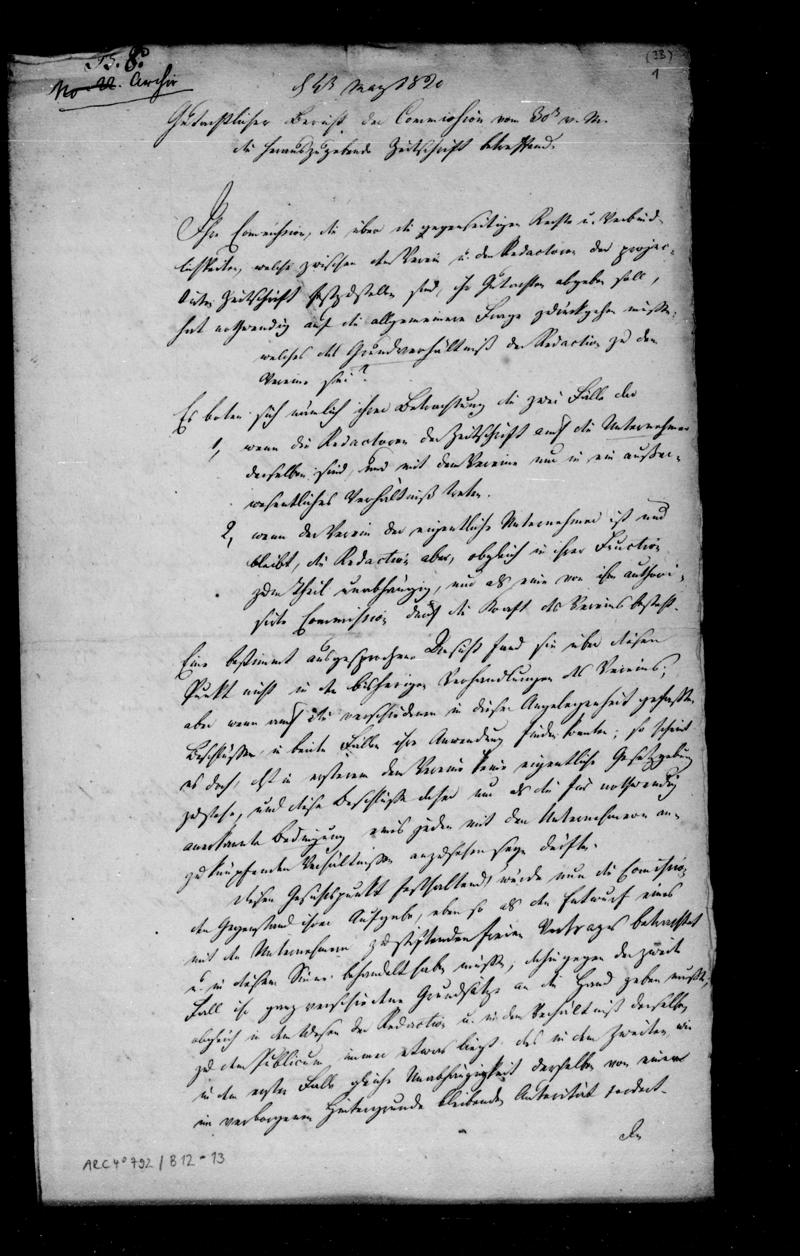 B. 8.
No 22. Archiv
(33)
1
d 13 May 1820
Gutachtlicher Bericht der Commission vom 30t v. M.
die herauszugebende Zeitschrift betreffend.
Ihre Commission, die über die gegenseitigen Rechte u. Verbind-
lichkeiten, welche zwischen dem Verein u. den Redactoren der projec-
tirten Zeitschrift festzustellen sind, ihr Gutachten abgeben soll,
hat nothwendig auf die allgemeinere Frage zurückgehen müssen,
welches das Grundverhältniß der Redaction zu dem
Vereine sei?
Es boten sich nämlich ihrer Betrachtung die zwei Fälle dar
1, wenn die Redactoren der Zeitschrift auch die Unternehmer
derselben sind, und mit dem Vereine nur in ein außer-
wesentliches Verhältniß treten.
2, wenn der Verein der eigentliche Unternehmer ist und
bleibt, die Redaction aber, obgleich in ihrer Function
zum Theil unabhängig, nur als eine von ihm authori-
sirte Commission durch die Kraft des Vereins besteht.
Eine bestimmt ausgesprochene Ansicht fand sie über diesen
Punkt nicht in den bisherigen Verhandlungen des Vereins;
aber wenn auch die verschiedenen in dieser Angelegenheit gefaßten
Beschlüsse in beiden Fällen ihre Anwendung finden konnten; so scheint
es doch, als in ersterem dem Vereine keine eigentliche Gesetzgebung
zustehe, und diese Beschlüsse daher nur als die für nothwendig
anerkannte Bedingung eines jeden mit den Unternehmern an-
zuknüpfenden Verhältnisses anzusehen seyn dürften.
Diesen Gesichtspunkt festhaltend, würde nun die Commission
den Gegenstand ihrer Aufgabe, eben so als den Entwurf eines
mit den Unternehmern zu stiftenden freien Vertrages betrachtet
u. in diesem Sinne behandelt haben müssen, dahingegen der zweite
Fall ihr ganz verschiedene Grundsätze an die Hand geben mußte,
obgleich in dem Wesen der Redaction u. in dem Verhältniß derselben
zu dem Publicum immer etwas liegt, das in dem Zweiten, wie
in dem ersten Falle gleiche Unabhängigkeit derselben von einer
im verborgenen Hintergrunde bleibenden Autorität fordert.
ARC 4° 792 / B 12 - 13